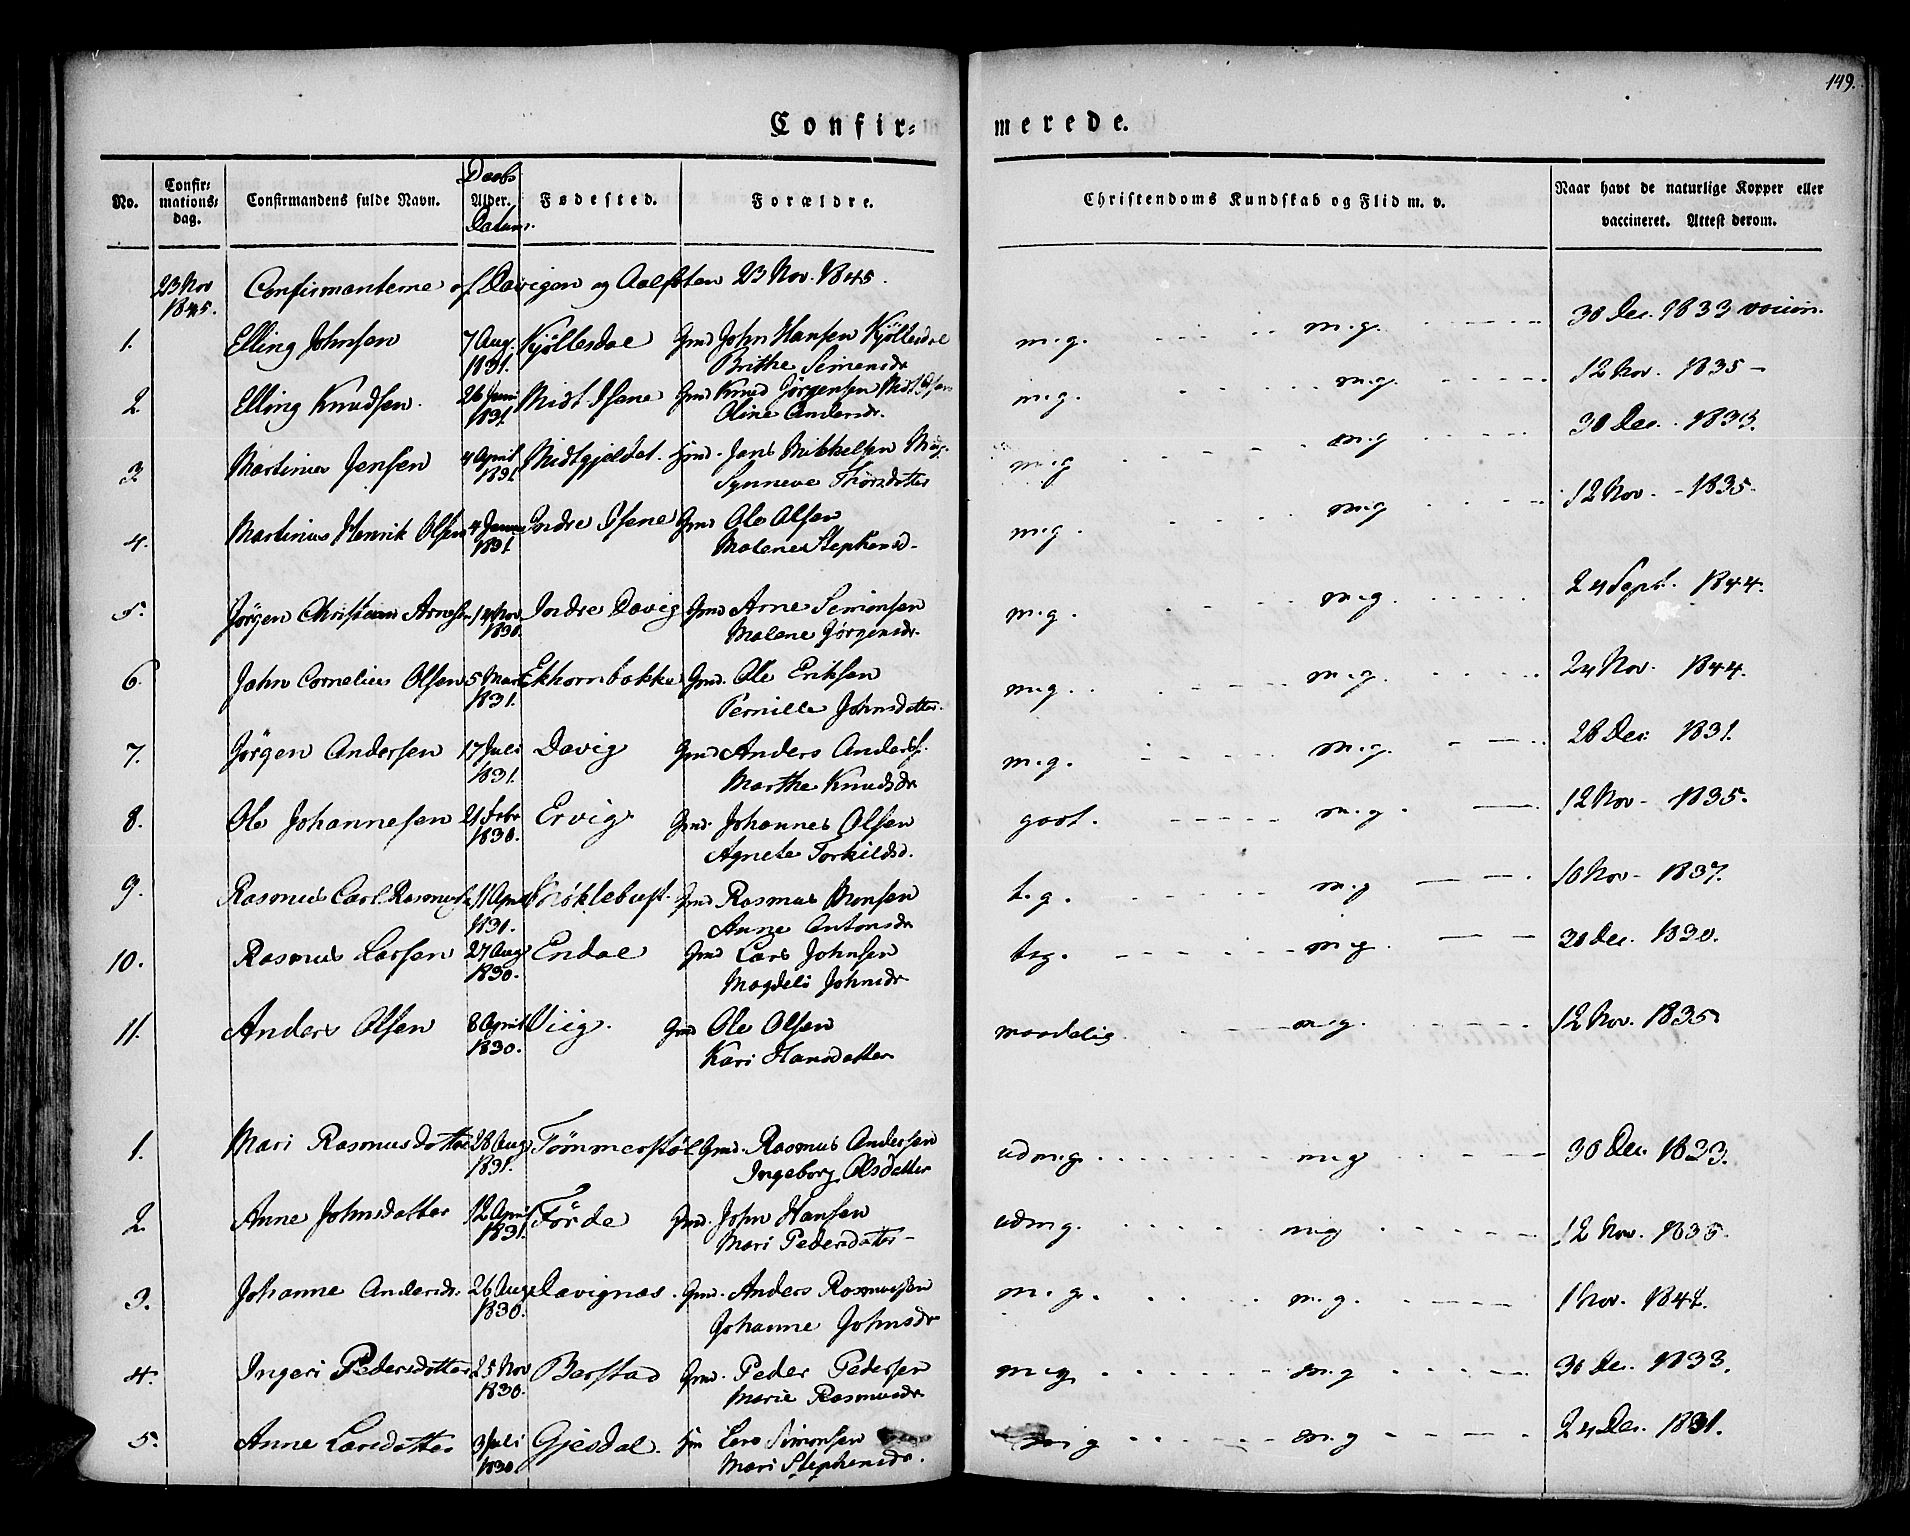 149.
Confir=merede.
No. Confirmations-dag. Confirmandens fulde Navn. Daabs Alder. Datum. Fødested. Forældre. Christendoms Kundskab og Flid m. v. Naar havt de naturlige Kopper eller vaccineret. Attest derom.
23 Nov 1845. Confirmanterne af Davigen og Aalfoten 23 Nov. 1845.
1. Elling Johnsen 7 Aug. 1831. Kjøllesdal Gmd John Hansen Kjøllesdal m.g. m.g. 30 Dec. 1833 vaccin.
Brithe Simensdr
2. Elling Knudsen. 26 Juni 1831. Midt Isene Gmd Knud Jørgensen m.g. m.g. 12 Nov. 1835 -
Oline Andersdr.
3. Martinus Jensen 4 April 1831. Midtgjeldet. Hmd. Jens Mikkelsen m.g m.g 30 Dec. 1833.
Synneve Thorsdatter
4. Martinus Henrik Olsen 4 1831. Indre Isene Gmd Ole Olsen m.g. m.g 12 Nov. - 1835.
Malene Stephensd-
5. Jørgen Christian Arnesen 14 Nov 1830. Indre Davig Gmd Arne Simonsen m.g. m.g. 24 Sept. 1844.
Malene Jørgensdr.
6. John Cornelius Olsen 5 Mart 1831. Ekhornbakke Gmd. Ole Eriksen m.g. m.g. 24 Nov. 1844.
Pernille Johnsdatter.
7. Jørgen Andersen 17 Juli 1831. Davig Gmd Anders Anders. m.g. m.g. 28 Dec 1831.
Marthe Knudsdr
8. Ole Johannesen 21 Febr 1830. Ervig. Gmd. Johannes Olsen godt. m.g. 12 Nov - 1835.
Agnete Torkildsd.
9. Rasmus Carl Rasmus 11 April 1831. Gmd Rasmus Monsen t.g. m.g 10 Nov - 1837.
Anne Antonsdr
10. Rasmus Larsen 27 Aug 1830. Endal Gmd Lars Johnsen t.g. m.g. 30 Dec. 1830.
Magdeli Johnsdr
11. Anders Olsen 8 April 1830. Viig. Gmd Ole Olsen maadelig m.g. 12 Nov. 1835
Kari Hansdatter
1. Mari Rasmusdatter 28 Aug 1831. Tømmerstøl Gmd. Rasmus Andersen udm.g. m.g 30 Dec. 1833.
Ingeborg Olsdatter
2. Anne Johnsdatter 12 April 1831. Førde Gmd. John Hansen udm g. m.g 12 Nov. 1835.
Mari Pedersdatter -
3. Johanne Andersdr. 26 Aug 1830. Davignæs. Gmd. Anders Rasmussen m.g. m.g. 1 Nov. 1842.
Johanne Johnsdr
4. Ingeri Pedersdatter 25 Nov 1830. Barstad Gmd. Peder Pedersen m.g. m.g 30 Dec. 1833.
Marie Rasmusdr
5. Anne Larsdatter 3 Juli 1830. Gjesdal. Hm Lars Simonsen m g m.g 24 Dec. 1831.
Mari Stephensdr.